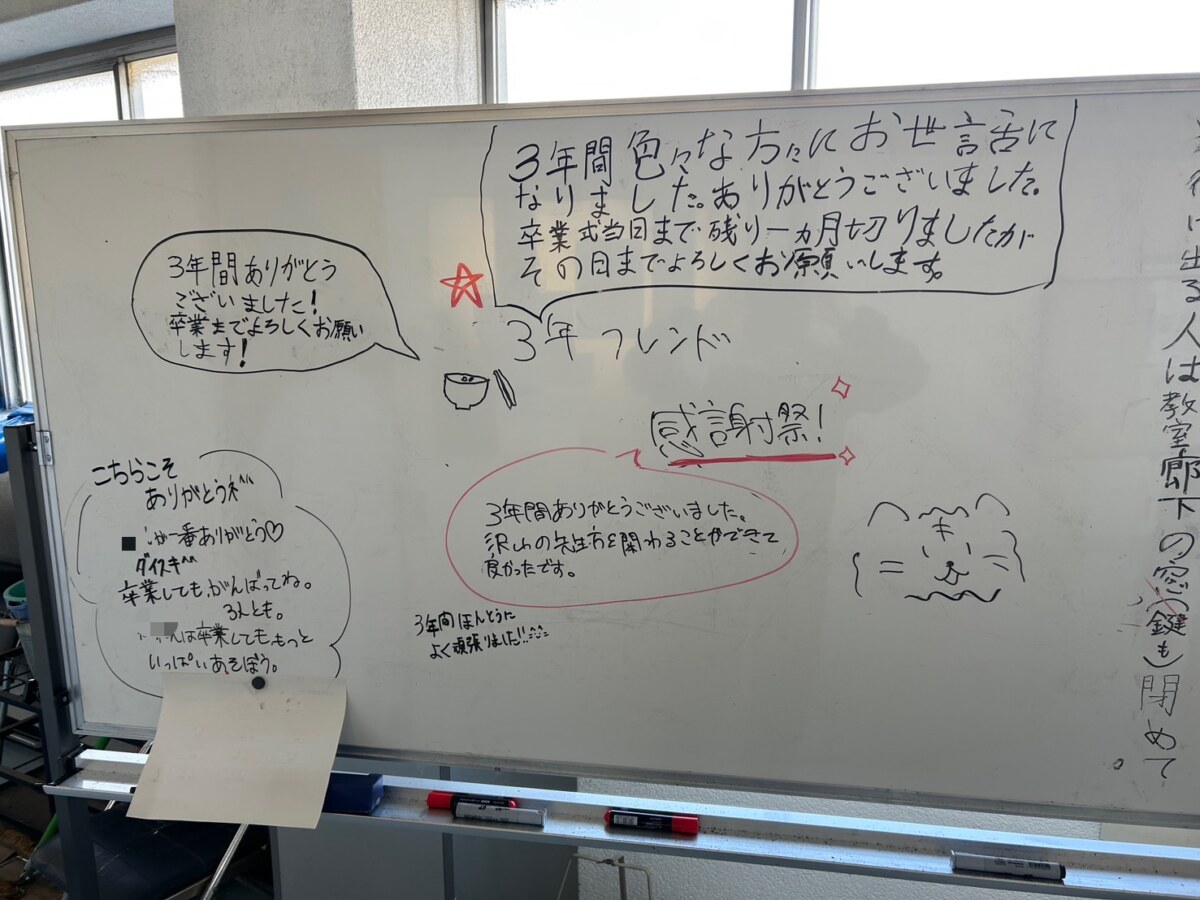 3年間色々な方々にお世話に
なりました。ありがとうございました。
卒業式当日まで残り一ヵ月切りましたが
その日までよろしくお願いします。
3年間ありがとう
ございました!
卒業までよろしくお願い
します!
3年フレンド
感謝祭!
こちらこそ
ありがとうネ^^
一番ありがとう♡
ダイスキ^^
卒業しても、がんばってね。
3人とも。
は卒業しても、もっと
いっぱいあそぼう。
3年間ありがとうございました。
沢山の先生方を関わることができて
良かったです。
3年間ほんとうに
よく頑張りました!!^^
に出る人は教室廊下の窓(鍵も)閉めて
。